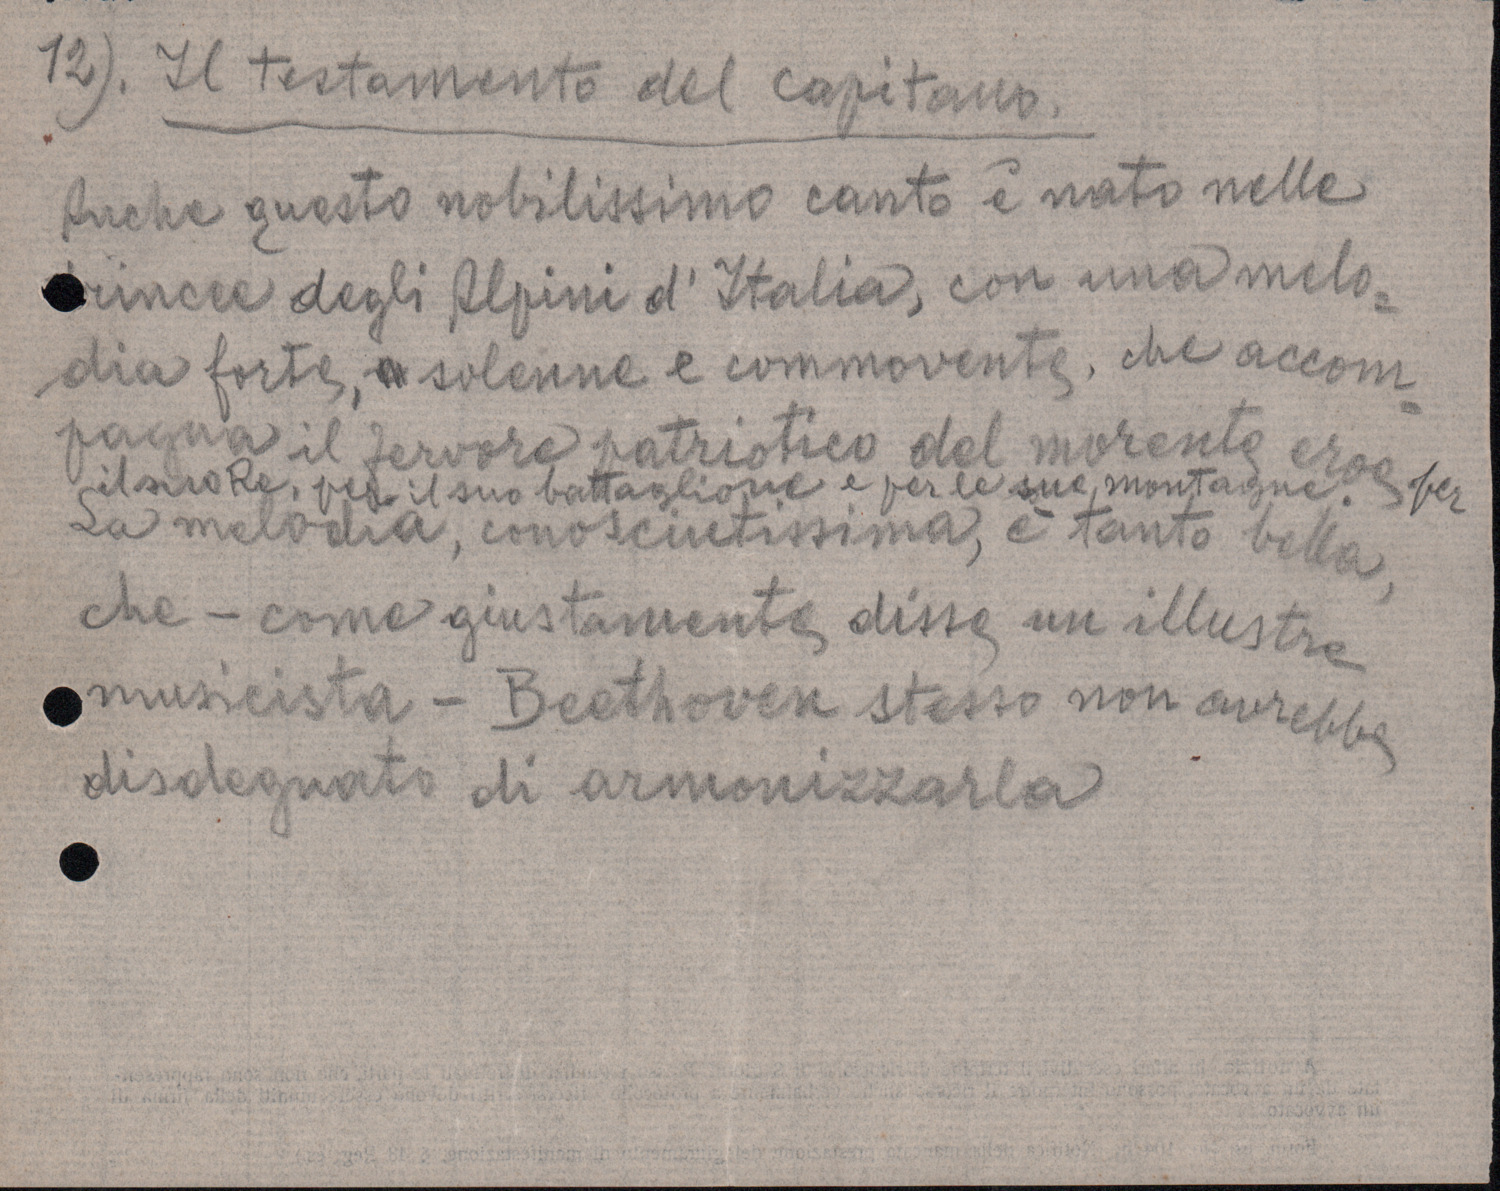 12). Il testamento del capitano.
Anche questo nobilissimo canto è nato nelle
trincee degli Alpini d'Italia, con una melo=
dia forte, solenne e commovente, che accom=
pagna il fervore patriotico del morente eroe per
il suo Re, per il suo battaglione e per le sue montagne.
La melodia, conosciutissima, è tanto bella,
che – come giustamente disse un illustre
musicista – Beethoven stesso non avrebbe
disdegnato di armonizzarla